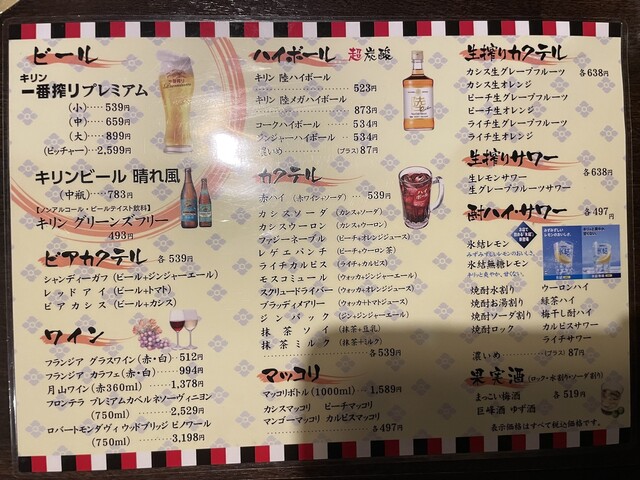 ビール
キリン
一番搾りプレミアム
(小) 539円
(中) 659円
(大) 899円
(ピッチャー) 2,599円
キリンビール 晴れ風
(中瓶) 783円
【ノンアルコール・ビールテイスト飲料】
キリン グリーンズフリー
493円
ビアカクテル 各539円
シャンディーガフ (ビール+ジンジャーエール)
レッドアイ (ビール+トマト)
ビアカシス (ビール+カシス)
ワイン
フランジア グラスワイン(赤・白) 512円
フランジア カラフェ(赤・白) 994円
月山ワイン(赤360ml) 1,378円
フロンテラ プレミアムカベルネソーヴィニヨン
(750ml) 2,529円
ロバートモンダヴィ ウッドブリッジ ピノワール
(750ml) 3,198円
ハイボール 超炭酸
キリン 陸ハイボール
523円
キリン 陸メガハイボール
873円
コークハイボール 534円
ジンジャーハイボール 534円
濃いめ (プラス)87円
カクテル
赤ハイ (赤ワイン+ソーダ) 539円
カシスソーダ (カシス+ソーダ)
カシスウーロン (カシス+ウーロン)
ファジーネーブル (ピーチ+オレンジジュース)
レゲエパンチ (ピーチ+ウーロン茶)
ライチカルピス (ライチ+カルピス)
モスコミュール (ウォッカ+ジンジャーエール)
スクリュードライバー (ウォッカ+オレンジジュース)
ブラッディメアリー (ウォッカ+トマトジュース)
ジンバック (ジン+ジンジャーエール)
抹茶ソイ (抹茶+豆乳)
抹茶ミルク (抹茶+ミルク)
各539円
マッコリ
マッコリボトル(1000ml) 1,589円
カシスマッコリ ピーチマッコリ
マンゴーマッコリ カルピスマッコリ
各497円
生搾りカクテル
カシス生グレープフルーツ 各638円
カシス生オレンジ
ピーチ生グレープフルーツ
ピーチ生オレンジ
ライチ生グレープフルーツ
ライチ生オレンジ
生搾りサワー
生レモンサワー 各638円
生グレープフルーツサワー
酎ハイ・サワー 各497円
氷結レモン
みずみずしいレモンのおいしさ。
氷結無糖レモン
キリっと爽やか、甘くない。
焼酎水割り
焼酎お湯割り
焼酎ソーダ割り
焼酎ロック
ウーロンハイ
緑茶ハイ
梅干し酎ハイ
カルピスサワー
ライチサワー
濃いめ (プラス)87円
果実酒 (ロック・水割り・ソーダ割り)
まっこい梅酒 各519円
巨峰酒 ゆず酒
表示価格はすべて税込価格です。